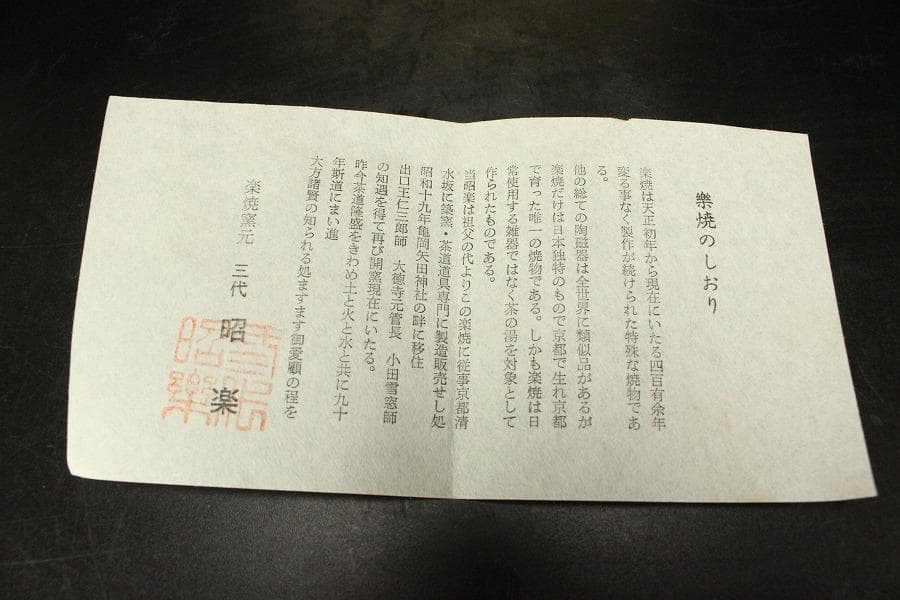 樂焼のしおり
楽焼は天正初年から現在にいたる四百有余年
変る事なく製作が続けられた特殊な焼物であ
る。
他の総ての陶磁器は全世界に類似品があるが
楽焼だけは日本独特のもので京都で生れ京都
で育った唯一の焼物である。しかも楽焼は日
常使用する雑器ではなく茶の湯を対象として
作られたものである。
当昭楽は祖父の代よりこの楽焼に従事京都清
水坂に築窯・茶道道具専門に製造販売せし処
昭和十九年亀岡矢田神社の畔に移住
出口王仁三郎師　大徳寺元管長　小田雪窓師
の知遇を得て再び開窯現在にいたる。
昨今茶道隆盛をきわめ土と火と水と共に九十
年斯道にまい進
大方諸賢の知られる処ますます御愛顧の程を
楽焼窯元　三代　昭　楽